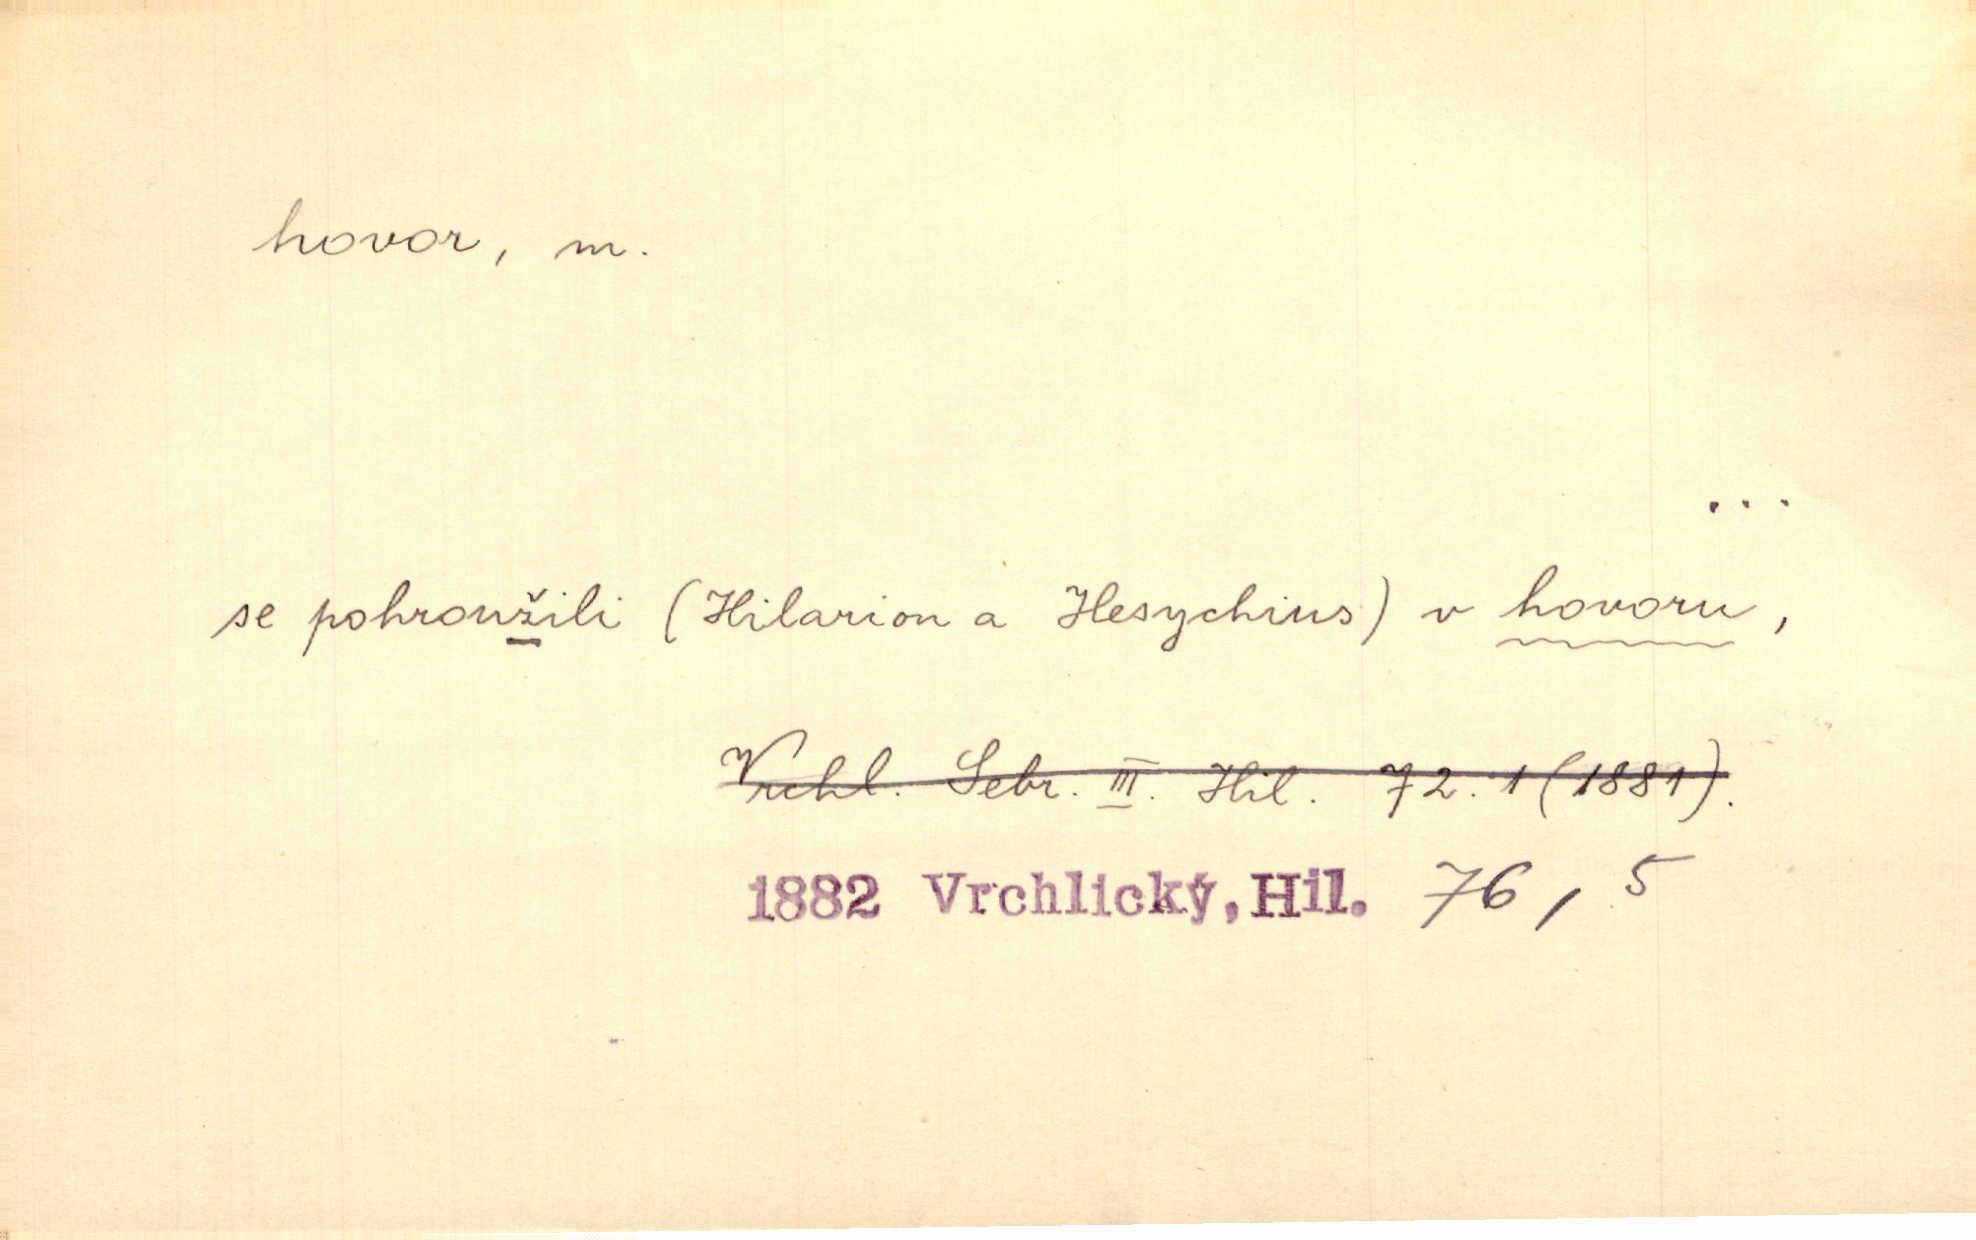 hovor, m.
...
se pohroužili (Hilarion a Hesychius) v hovoru,
Vrchl. Sebr. III. Hil. 72.1 (1881).
1882 Vrchlický, Hil. 76, 5